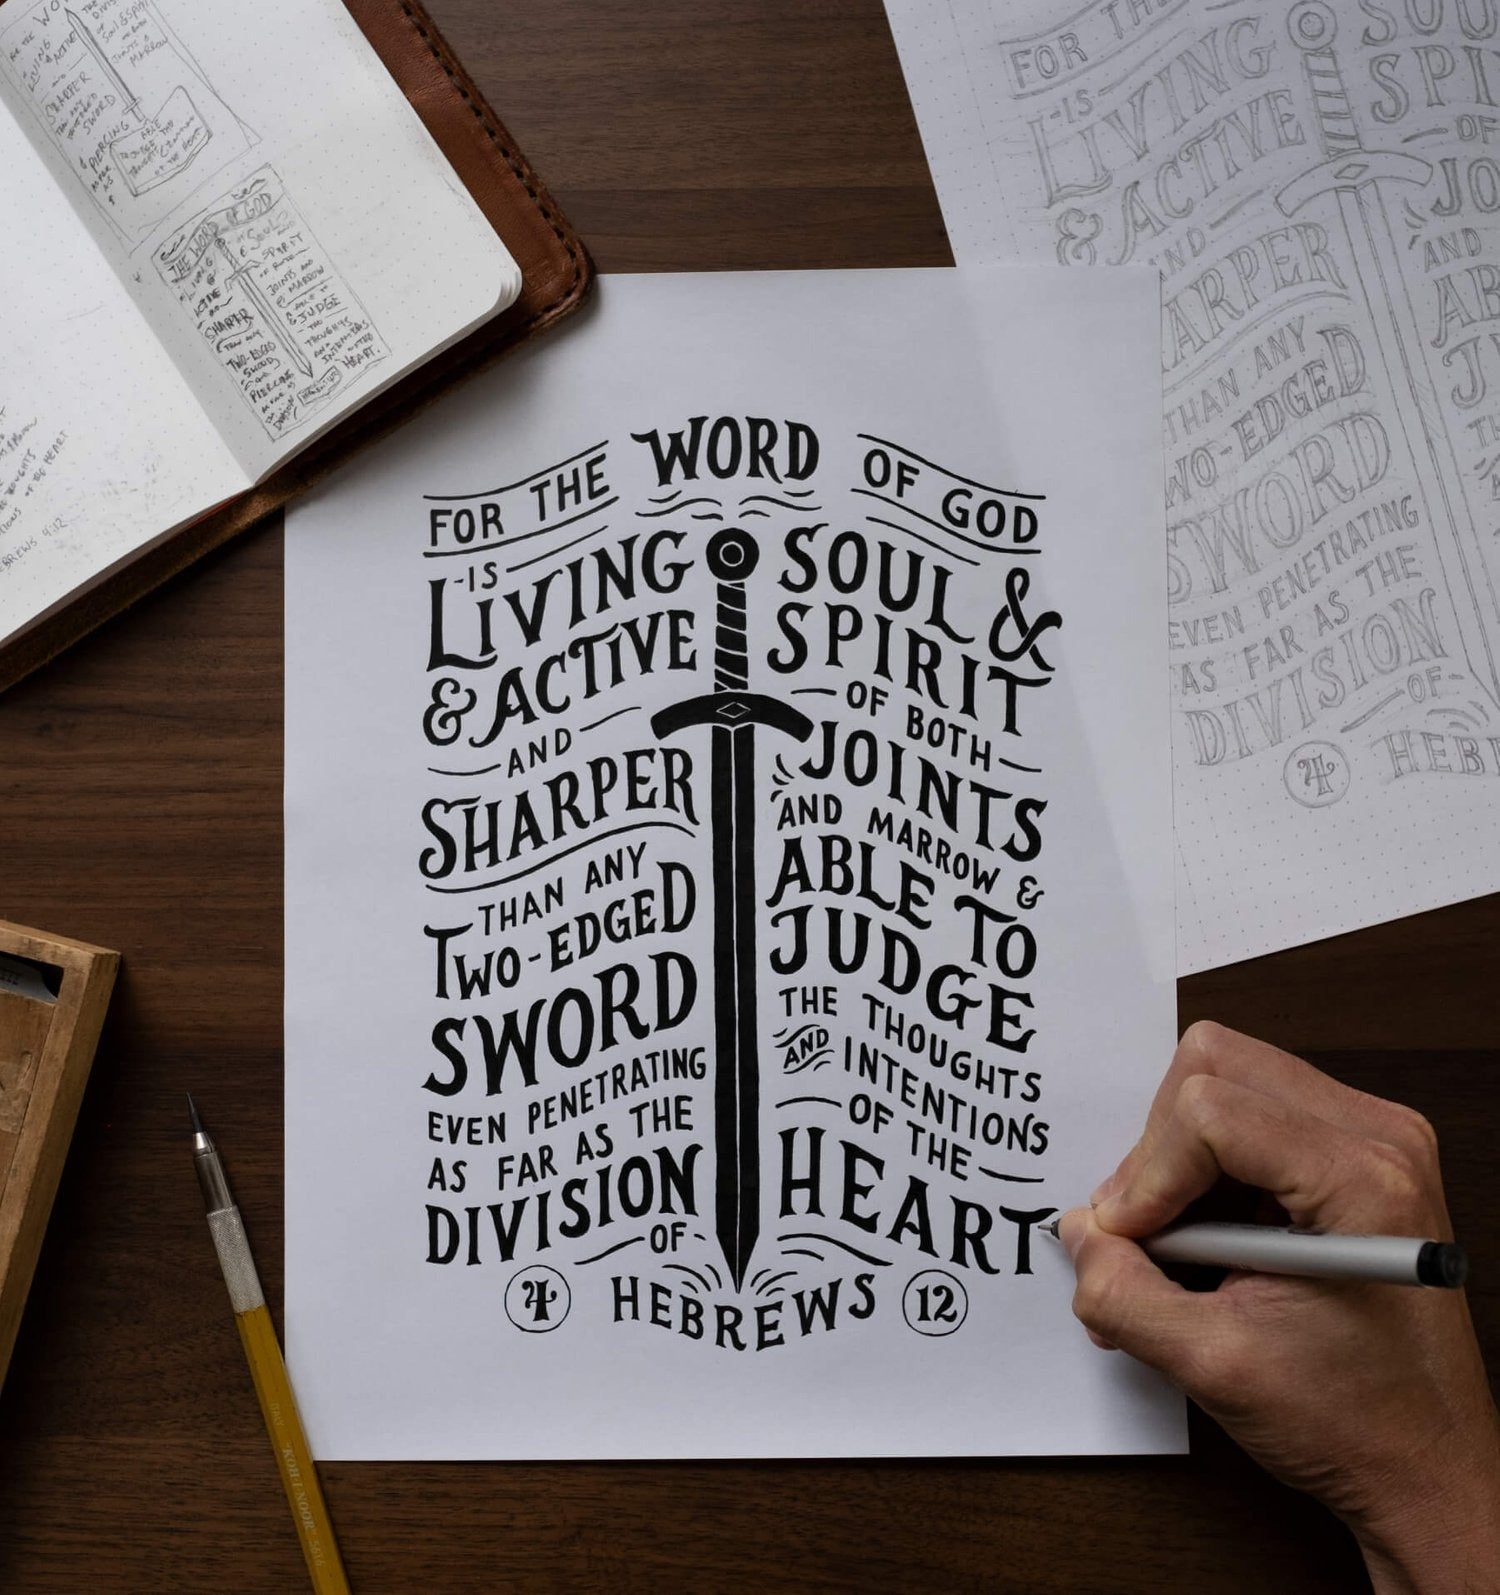 FOR THE WORD OF GOD
-IS-
LIVING
& ACTIVE
AND
SHARPER
THAN ANY
TWO-EDGED
SWORD
EVEN PENETRATING
AS FAR AS THE
DIVISION
OF
SOUL &
SPIRIT
OF BOTH
JOINTS
AND MARROW &
ABLE TO
JUDGE
THE THOUGHTS
AND INTENTIONS
OF THE
HEART
4 HEBREWS 12
FOR THE
-IS-
LIVING
& ACTIVE
AND
ARPER
THAN ANY
WO-EDGED
SWORD
EVEN PENETRATING
AS FAR AS THE
DIVISION
-OF-
SOU
SPI
OF
JO
AND
AB
J
TH
4 HEB
THE WORD OF GOD
LIVING
&
ACTIVE
SHARPER
THAN ANY
TWO-EDGED
SWORD
AND
PIERCING
DIVISION
SOUL
SPIRIT
JOINTS AND
MARROW
& JUDGE
THE
THOUGHTS
AND
HEART.
LIVING
ACTIVE
SHARPER
SWORD
PIERCING
ABLE
MARROW
OF THE HEART
HEBREWS 4:12
"KOH-I-NOOR" 5616